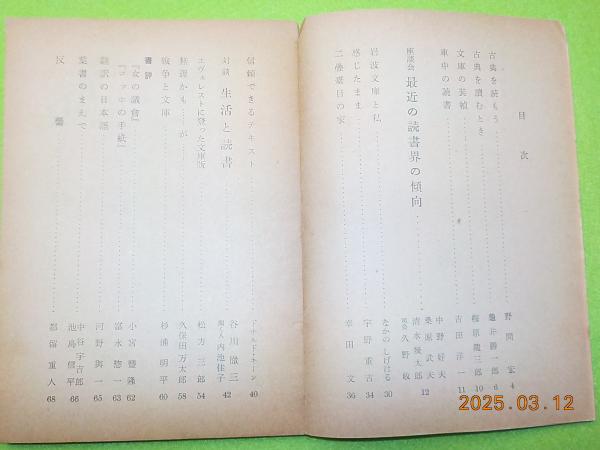 目次
古典を読もう 野間宏 4
古典を讀むとき 亀井勝一郎 6
文庫の装幀 梅原龍三郎 10
車中の読書 吉田洋一 11
座談会 最近の読書界の傾向 中野好夫 桑原武夫 清水幾太郎 司会 久野収 12
岩波文庫と私 なかのしげはる 30
感じたまま 宇野重吉 34
二葉亭四迷の家 幸田文 36
信頼できるテキスト ドナルド・キーン 40
対談 生活と読書 谷川徹三 内池佳子 42
エヴェレストに登った文庫版 松方三郎 54
無理かも……が 久保田万太郎 58
戦争と文庫 杉浦明平 60
書評
『女の議会』 小宮豊隆 62
『ゴッホの手紙』 富永惣一 63
翻訳の日本語 河野與一 65
葉書のまえで 中谷宇吉郎 池島信平 66
反響 都留重人 68
2025.03.12